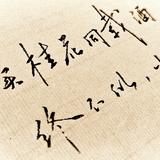 买桂花同载酒
终不似，